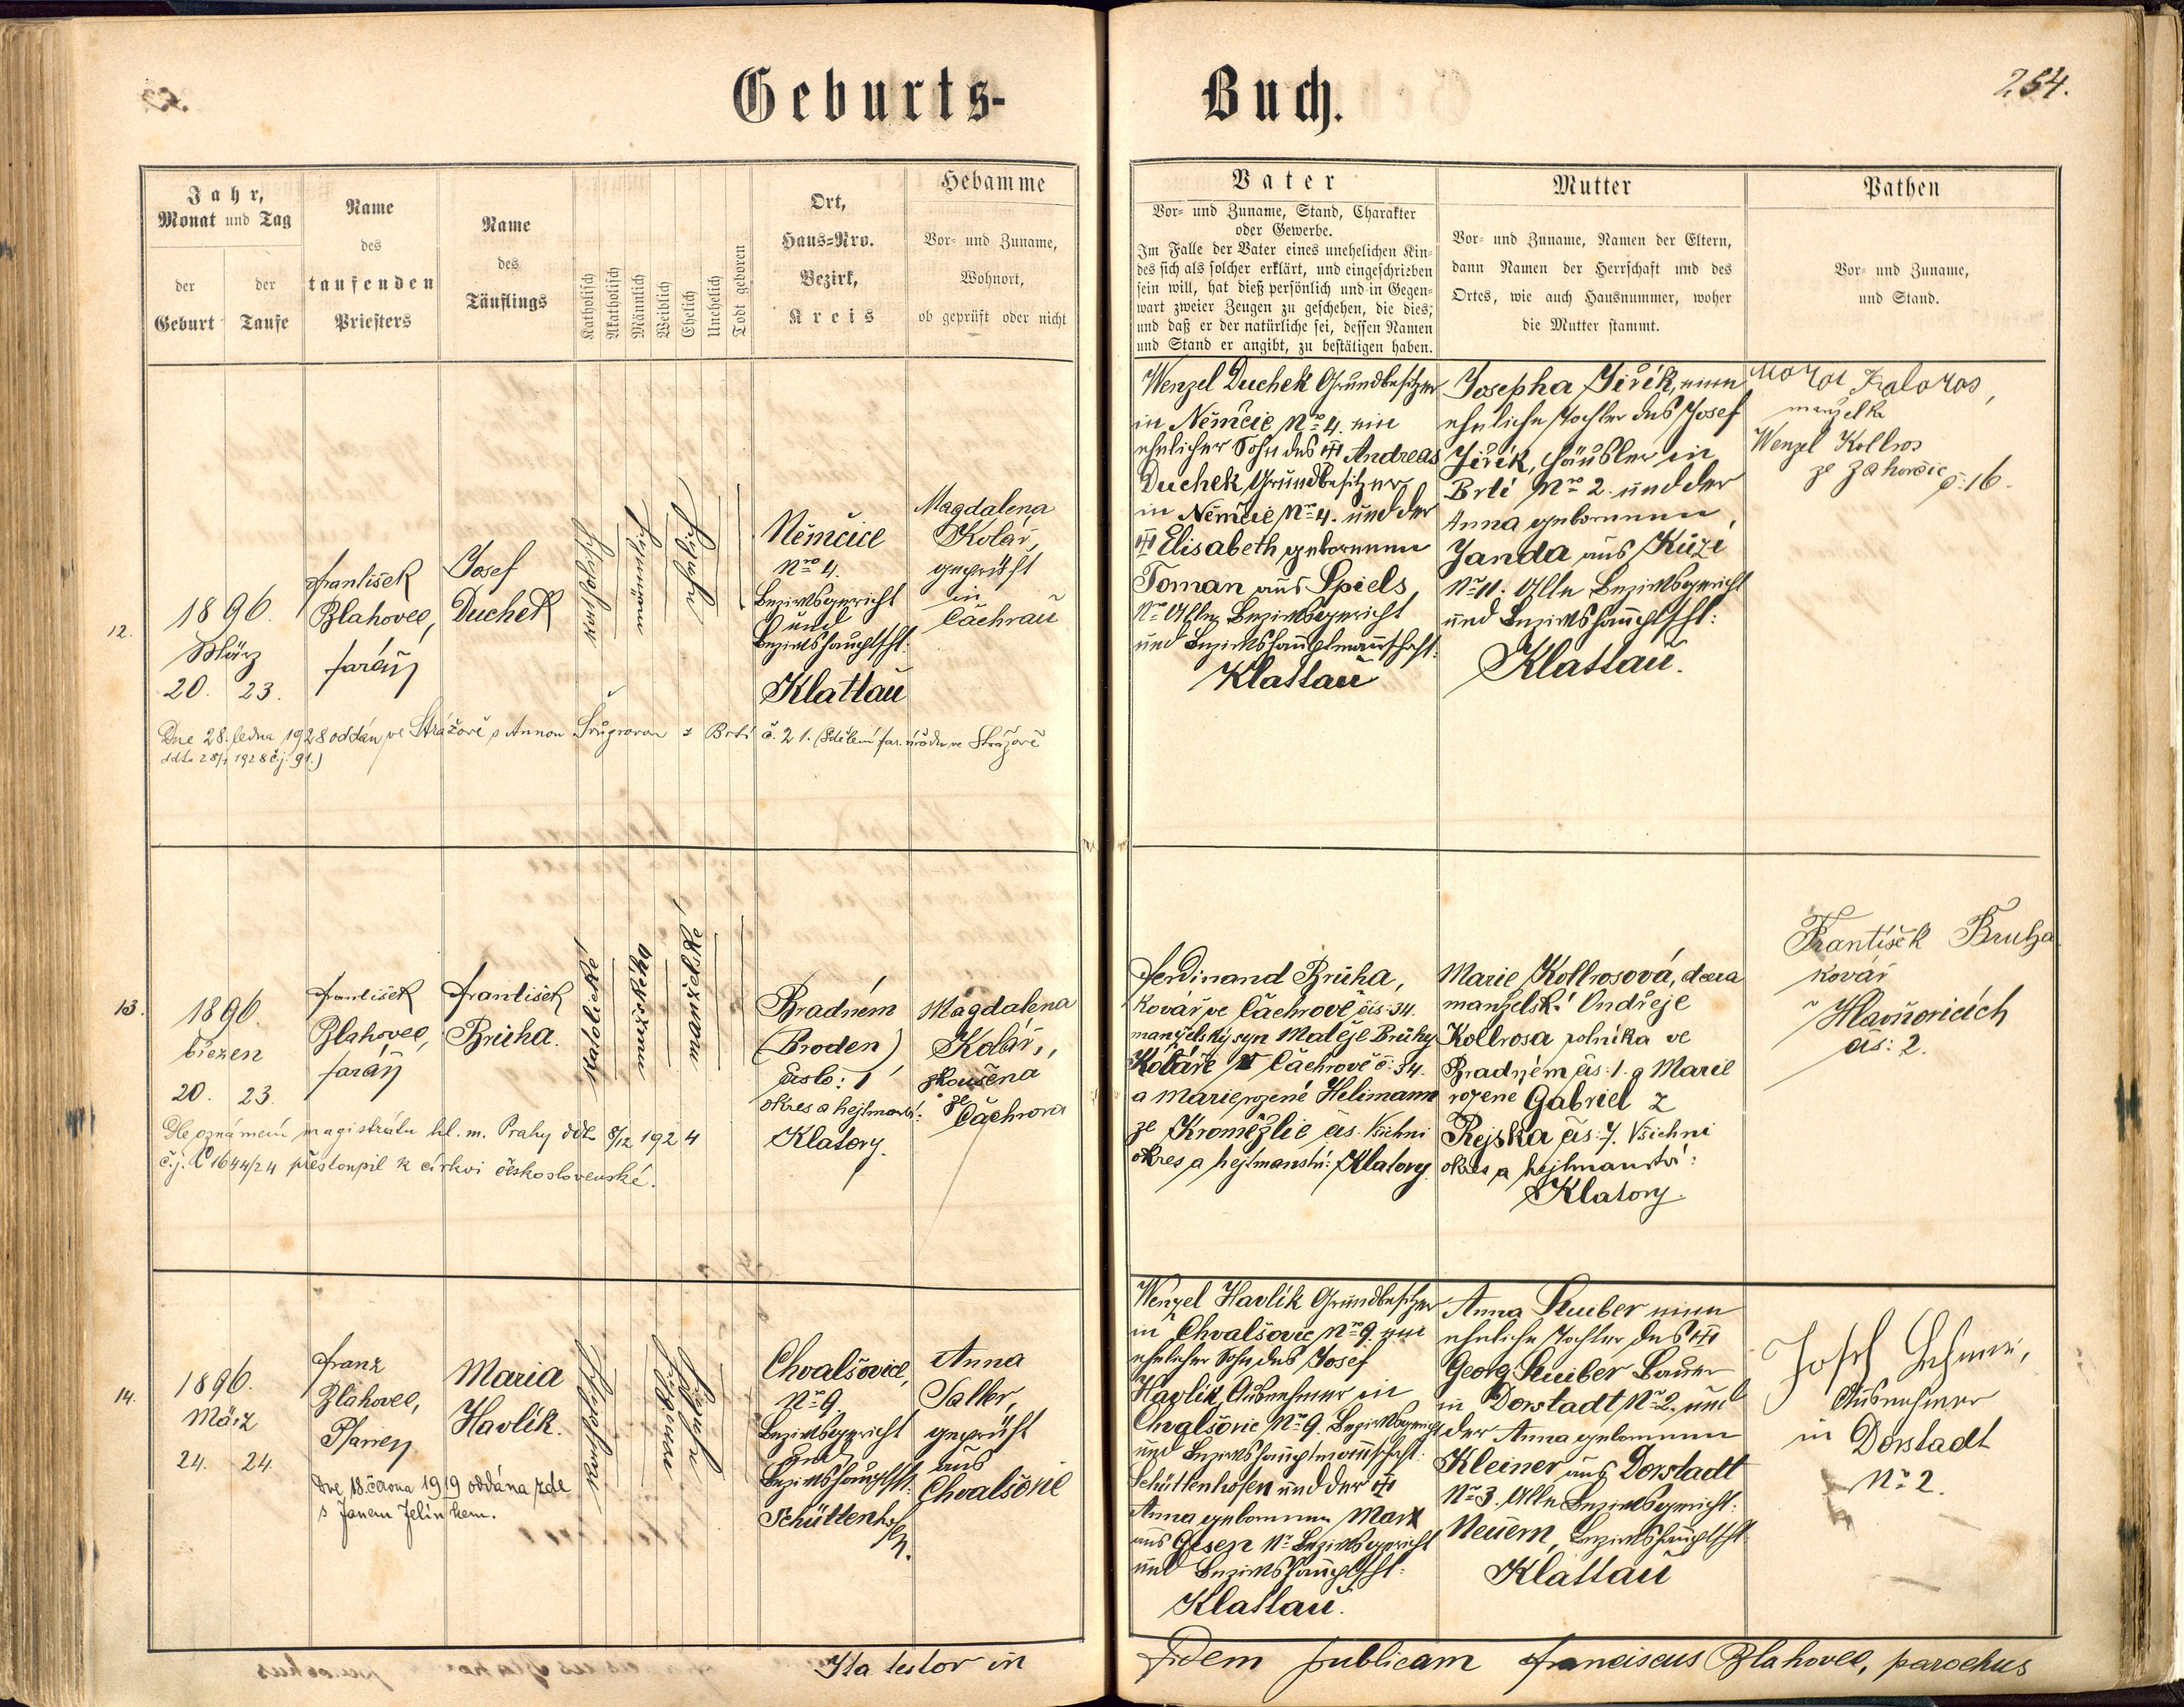 Geburts-
Buch.
254.
Jahr,
Monat und Tag
der
Geburt
der
Taufe
Name
des
taufenden
Priesters
Name
des
Täuflings
Katholisch
Akatholisch
Männlich
Weiblich
Ehelich
Unehelich
Todt geboren
Ort,
Haus-Nro.
Bezirk,
Kreis
Hebamme
Vor- und Zuname,
Wohnort,
ob geprüft oder nicht
Vater
Vor- und Zuname, Stand, Charakter
oder Gewerbe.
Im Falle der Vater eines unehelichen Kin-
des sich als solcher erklärt, und eingeschrieben
sein will, hat dieß persönlich und in Gegen-
wart zweier Zeugen zu geschehen, die dies;
und daß er der natürliche sei, dessen Namen
und Stand er angibt, zu bestätigen haben.
Mutter
Vor- und Zuname, Namen der Eltern,
dann Namen der Herrschaft und des
Ortes, wie auch Hausnummer, woher
die Mutter stammt.
Pathen
Vor- und Zuname,
und Stand.
12.
1896.
März
20. 23.
František
Blahovec,
farář
Josef
Duchek
katholisch
männlich
ehelich
Němčice
Nro 4.
Bezirksgericht
und
Bezirkshauptscht:
Klattau
Magdalena
Kolář,
geprüft
in
Čachrau
Wenzel Duchek Grundbesitzer
in Němčic Nro 4. ein
ehelicher Sohn des Andreas
Duchek, Grundbesitzer
in Němčic Nro 4. und der
Elisabeth geborenen
Toman aus Spiels
Nro Alle Bezirksgericht
und Bezirkshauptmannschaft:
Klattau
Josepha Jiřík, eine
eheliche Tochter des Josef
Jiřík, Häusler in
Brtí Nro 2. und der
Anna geborenen
Janda aus Kůzi
Nro 11. Alle Bezirksgericht
und Bezirkshauptscht:
Klattau.
manželka
Wenzel Kollros
ze Zahorčic č: 16.
Dne 28. ledna 1928 oddán ve Strážově s Annou z Brtí č. 21. (Sdělení far. úřadu ve Strážově
ddto 28/1 1928 čj. 91.)
13.
1896.
březen
20. 23.
František
Blahovec,
farář
František
Brůha.
katolické
mužského
manželské
Bradném
(Broden)
číslo: 1
okres a hejtmanst:
Klatovy.
Magdalena
Kolář,
zkoušena
ze
Čachrova
Ferdinand Brůha,
kovář ve Čachrově čís: 34.
manželský syn Matěje Brůhy
Koláře v Čachrově č: 34.
a Marie rozené Helimann
ze Kroměždic čís. Všichni
okres a hejtmanství: Klatovy.
Marie Kollrosová, dcera
manželsk: Ondřeje
Kollrosa rolníka ve
Bradném čís: 1. a Marie
rozené Gabriel z
Rejska čís: 7. Všichni
okres a hejtmanství:
Klatovy.
František Bruha
kovář
v Hlavňovicích
čís: 2.
Dle oznámení magistrátu hl. m. Prahy ddto 8/12 1924
č.j. 1644/24 přestoupil k církvi československé.
14.
1896.
März
24. 24.
Franz
Blahovec,
Pfarrer
Maria
Havlík.
katholisch
weiblich
ehelich
Chvalšovice,
Nro 9.
Bezirksgericht
und
Bezirkshauptscht:
Schüttenhofen.
Anna
Saller,
geprüft
aus
Chvalšovic
Wenzel Havlík Grundbesitzer
in Chvalšovic Nro 9. ein
ehelicher Sohn des Josef
Havlík, Ausnehmer in
Chvalšovic Nro 9. Bezirksgericht
und Bezirkshauptmannschaft:
Schüttenhofen und der
Anna geborenen Marx
aus Gesen Nro Bezirksgericht
und Bezirkshauptscht:
Klattau.
Anna Stuiber eine
eheliche Tochter des
Georg Stuiber Bauer
in Dorstadt Nro 2. und
der Anna geborenen
Kleiner aus Dorstadt
Nro 3. Alle Bezirksgericht:
Neuern, Bezirkshauptscht
Klattau
Josef
Ausnehmer
in Dorstadt
Nro 2.
Dne 18. června 1919 oddána zde
s Janem Jelínkem.
Ita testor in
fidem publicam Franciscus Blahovec, parochus